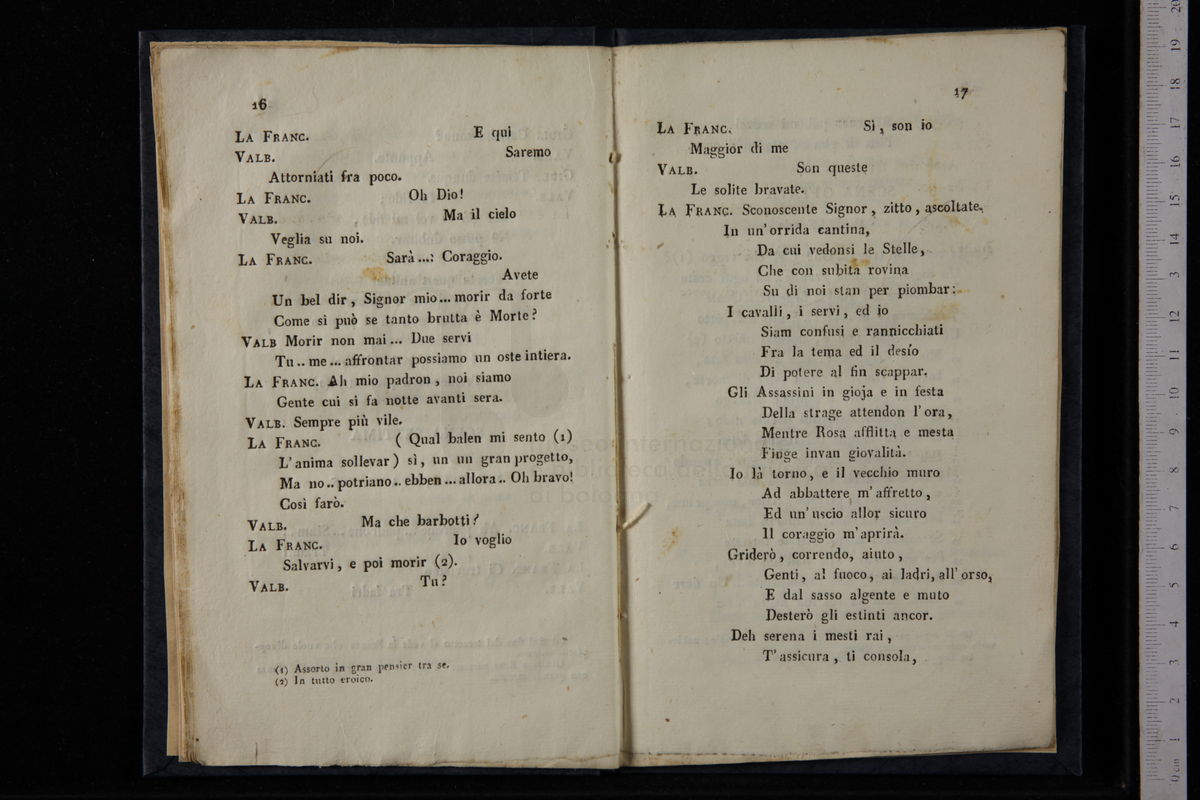 16
LA FRANC. E qui
VALB. Saremo
Attorniati fra poco.
LA FRANC. Oh Dio!
VALB. Ma il cielo
Veglia su noi.
LA FRANC. Sarà...: Coraggio.
Avete
Un bel dir, Signor mio... morir da forte
Come sì può se tanto brutta è Morte?
VALB Morir non mai... Due servi
Tu.. me... affrontar possiamo un oste intiera.
LA FRANC. Ah mio padron, noi siamo
Gente cui si fa notte avanti sera.
VALB. Sempre più vile.
LA FRANC. ( Qual balen mi sento (1)
L'anima sollevar) sì, un un gran progetto,
Ma no.. potriano.. ebben... allora.. Oh bravo!
Così farò.
VALB. Ma che barbotti?
LA FRANC. Io voglio
Salvarvi, e poi morir (2).
VALB. Tu?
(1) Assorto in gran pensier tra se.
(2) In tutto eroico.
17
LA FRANC. Sì, son io
Maggior di me
VALB. Son queste
Le solite bravate.
LA FRANC. Sconoscente Signor, zitto, ascoltate.
In un'orrida cantina,
Da cui vedonsi le Stelle,
Che con subita rovina
Su di noi stan per piombar:
I cavalli, i servi, ed io
Siam confusi e rannicchiati
Fra la tema ed il desío
Di potere al fin scappar.
Gli Assassini in gioja e in festa
Della strage attendon l'ora,
Mentre Rosa afflitta e mesta
Finge invan giovalità.
Io là torno, e il vecchio muro
Ad abbattere m'affretto,
Ed un'uscio allor sicuro
Il coraggio m'aprirà.
Griderò, correndo, aiuto,
Genti, al fuoco, ai ladri, all'orso,
E dal sasso algente e muto
Desterò gli estinti ancor.
Deh serena i mesti rai,
T'assicura, ti consola,